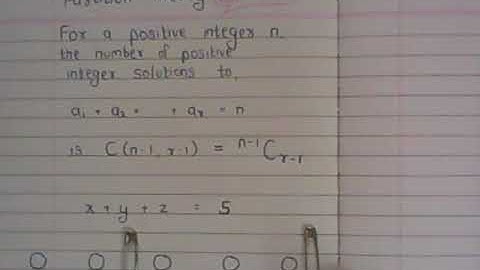 For a positive integer n
the number of positive
integer solutions to,
a₁ + a₂ + + aᵣ = n
is C(n-1, r-1) = ⁿ⁻¹Cᵣ₋₁
x + y + z = 5